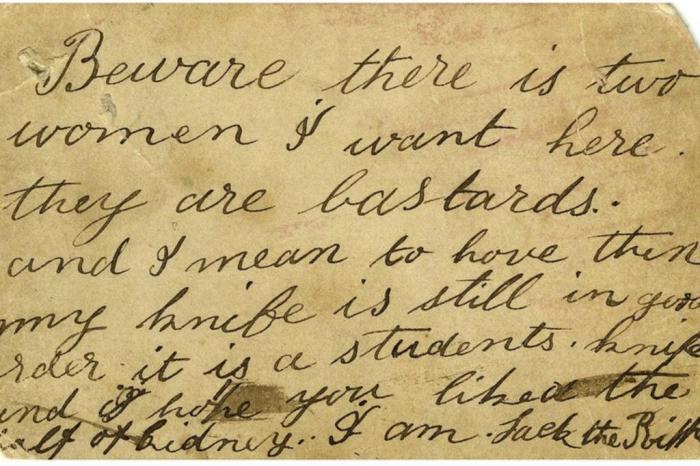 Beware there is two
women I want here.
they are bastards..
and I mean to hove them
my knife is still in good
rder it is a students. knife
and I hope you liked the
half of kidney.. I am Jack the Ripp